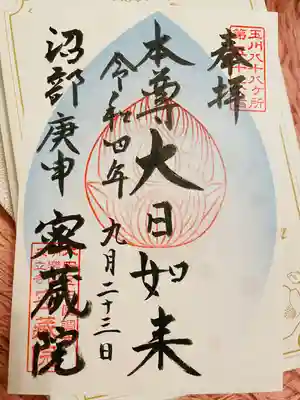 玉川八十八ケ所
奉拝
本尊大日如来
令和四年 九月二十三日
沼部庚申 密蔵院